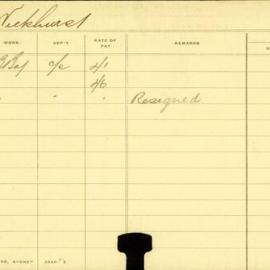 Wickhurst
WORK. DEP'T RATE OF PAY REMARKS
c/e 4/1
4/6
" " " Resigned
SYDNEY